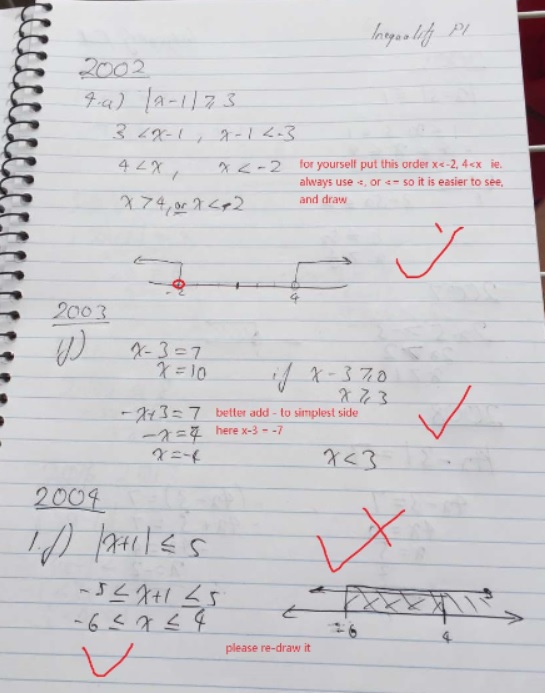 Inequality P1
2002
4.a) |x-1| ≥ 3
3 < x-1 , x-1 < -3
4 < x , x < -2
for yourself put this order x<-2, 4<x ie.
always use <, or <= so it is easier to see,
and draw
x > 4, or x < -2
-2 4
2003
f) x-3 = 7
x = 10
if x-3 ≥ 0
x ≥ 3
-x+3 = 7
better add - to simplest side
-x = 4
here x-3 = -7
x = -4
x < 3
2004
1.f) |x+1| ≤ 5
-5 ≤ x+1 ≤ 5
-6 ≤ x ≤ 4
-6 4
please re-draw it